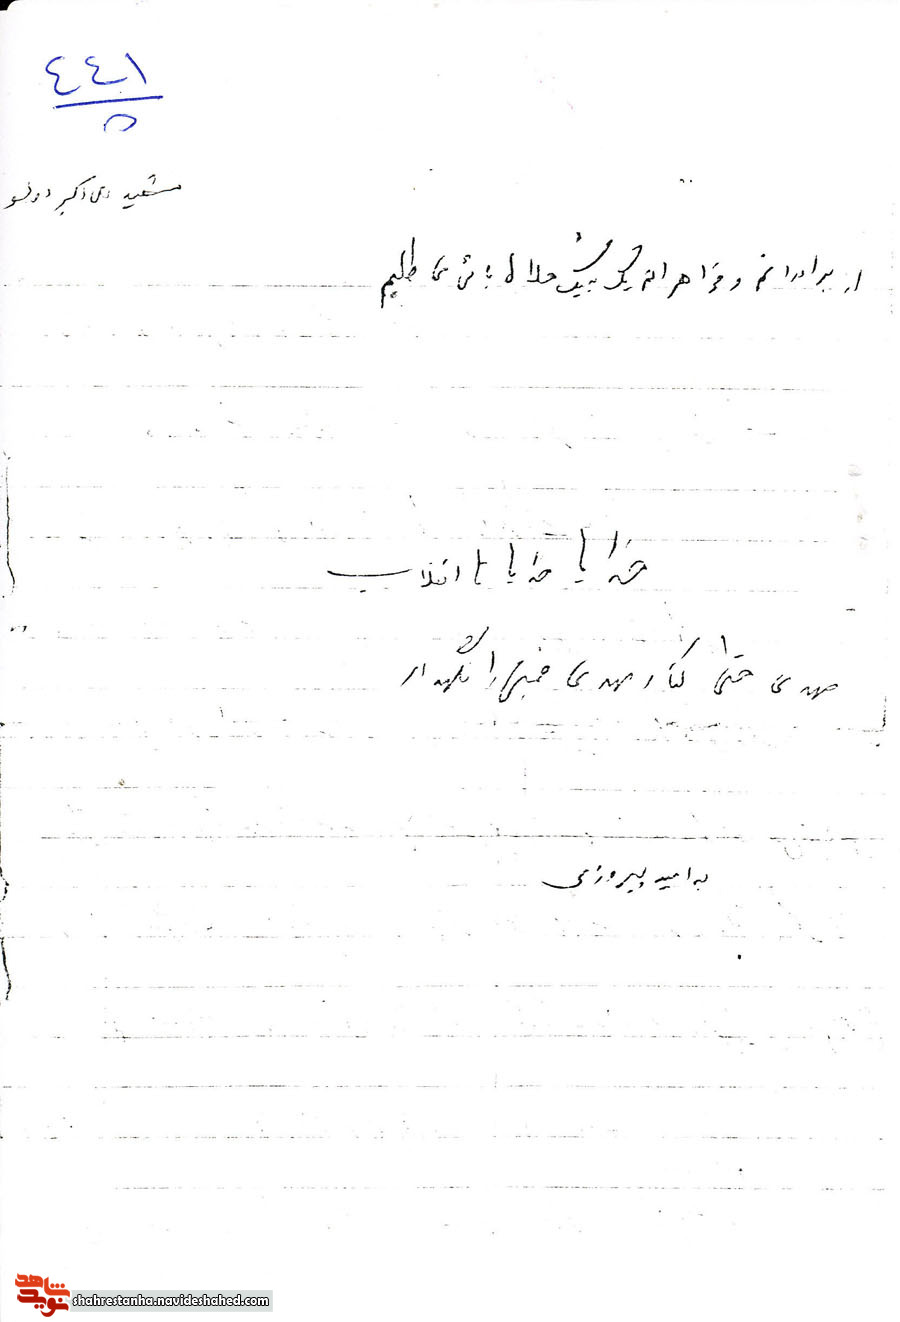 ٤٤١
٥
شهید علی اکبر دولو
از برادرانم و خواهرانم یک بیک حلالی بائی می طلبیم
خدایا خدایا تا انقلاب
مهدی حتی کنار مهدی خمینی را نگهدار
به امید پیروزی
نوید شاهد
shahrestanha.navideshahed.com